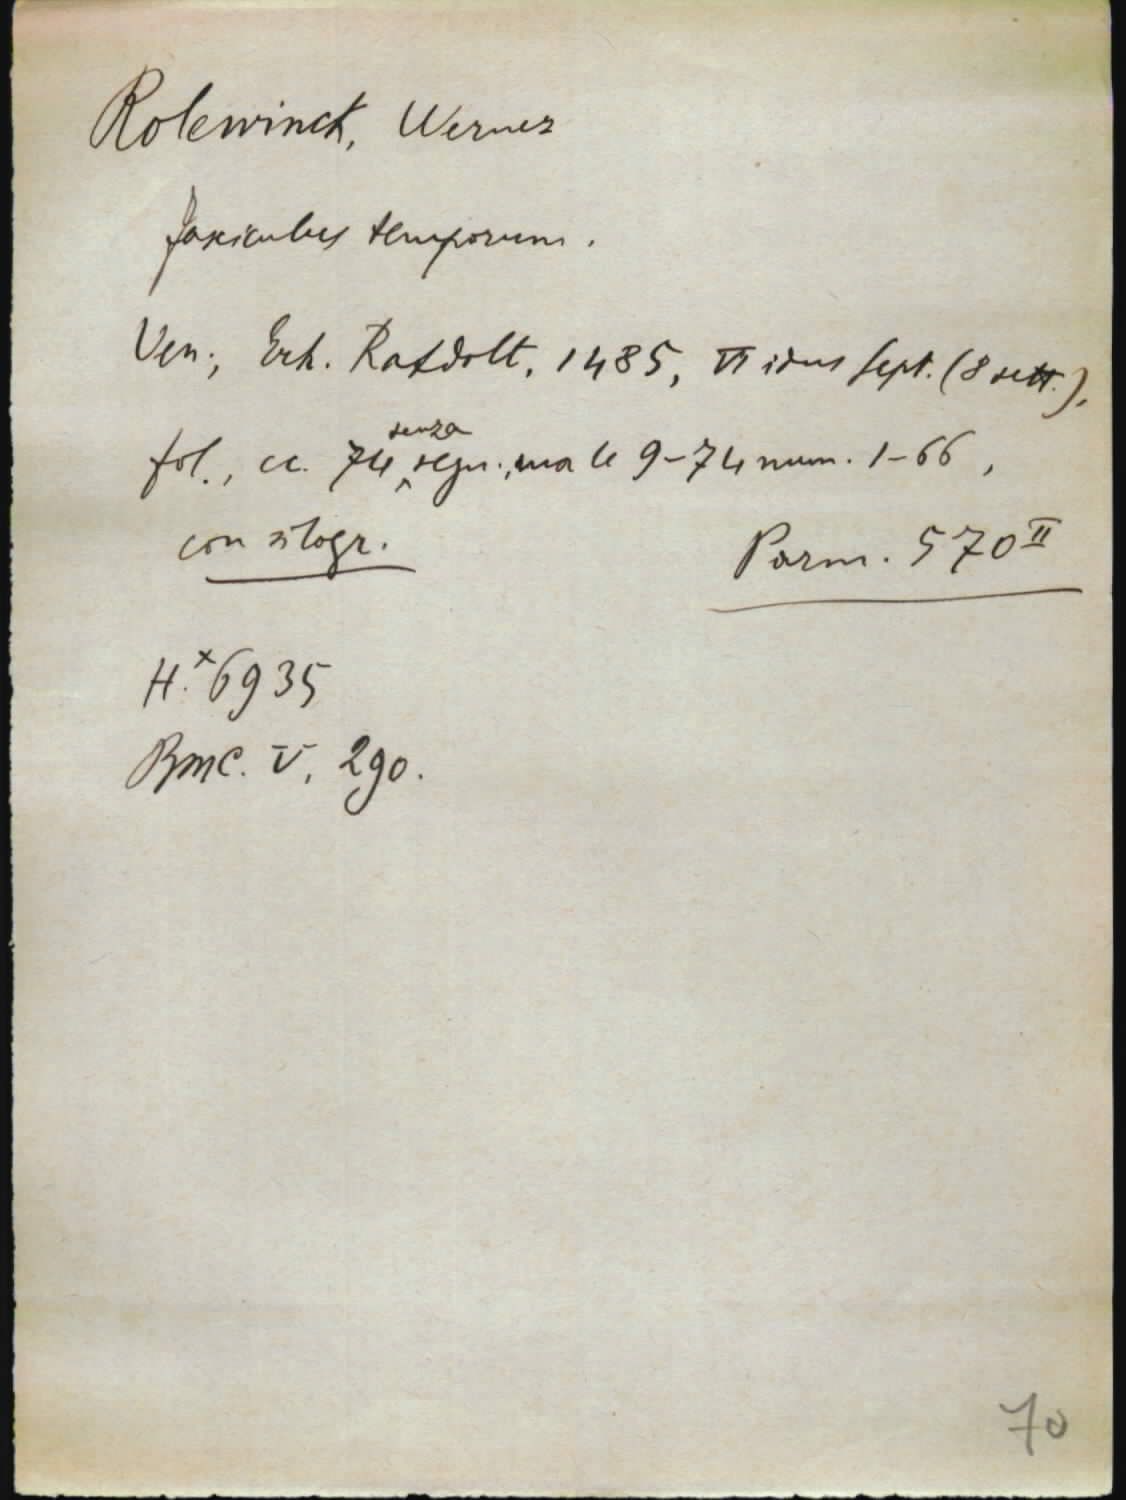 Rolewinck, Werner
fasciculus temporum.
Ven., Erh. Ratdolt, 1485, VI idus Sept. (8 sett.),
fol., cc. 74 senza segn., ma le 9-74 num. 1-66,
con silogr.
Parm. 570 II
H. x 6935
BMC. V, 290.
70